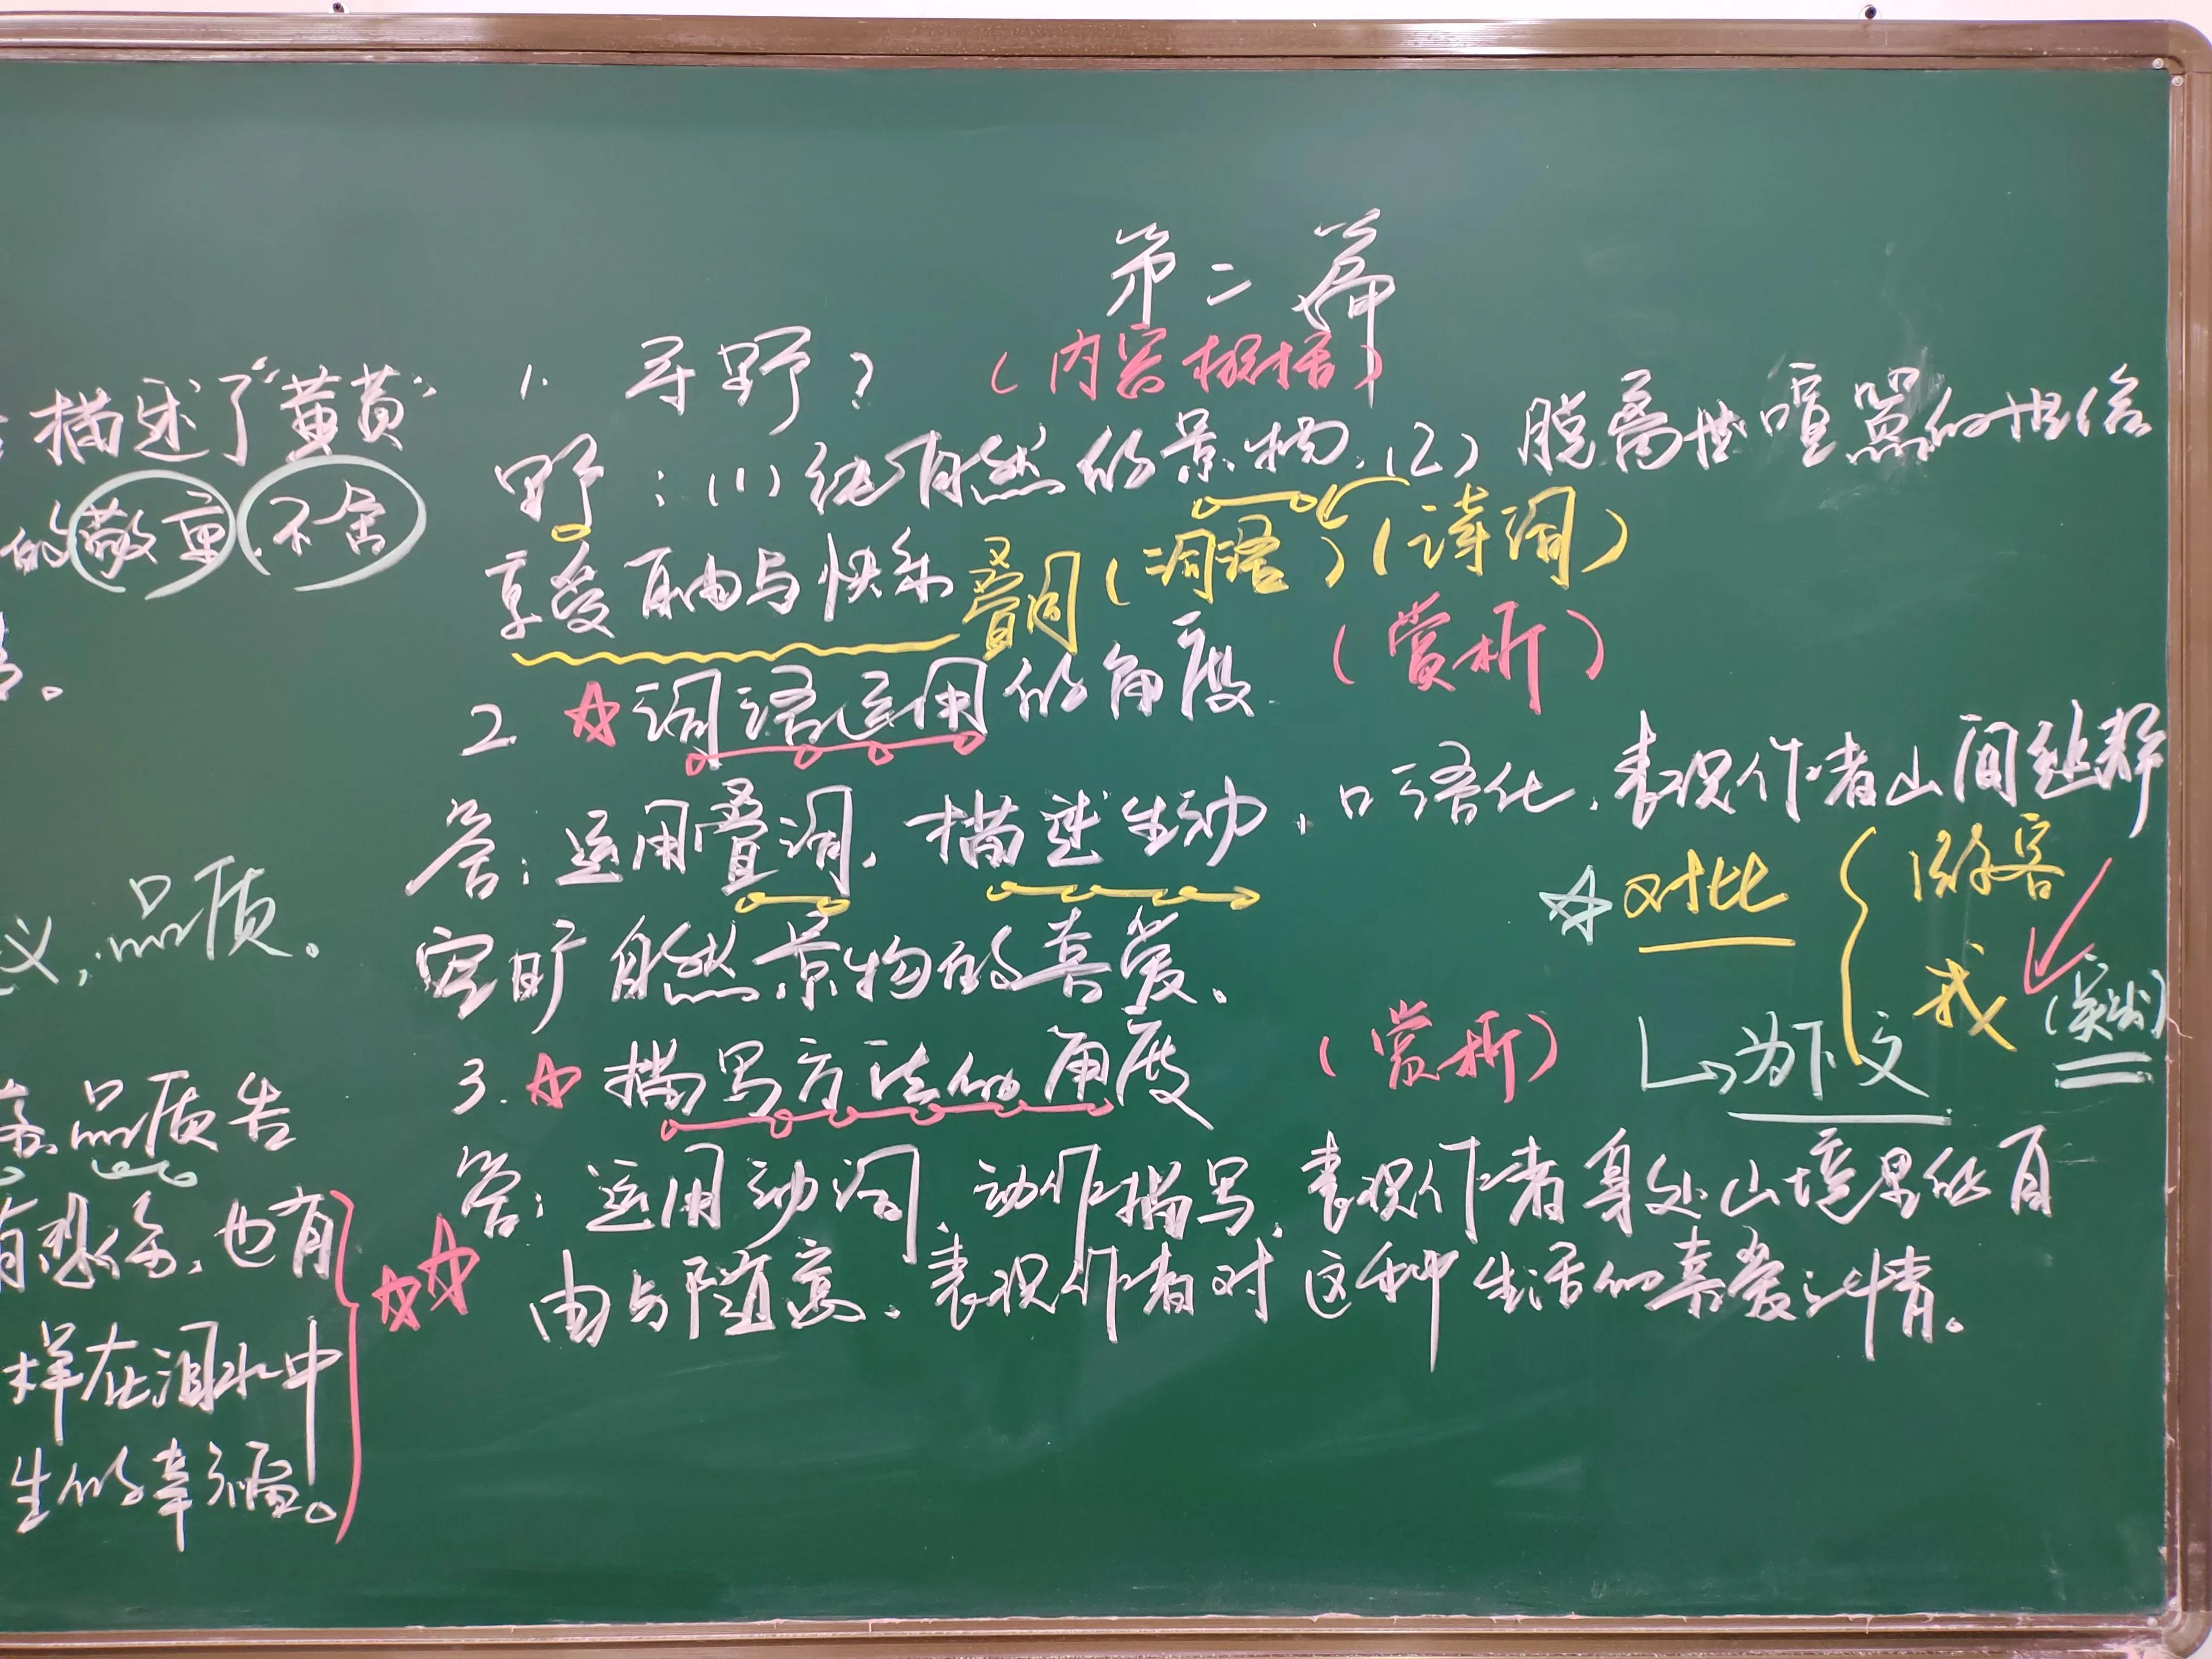 描述了"黄黄"
的敬重、不舍
义,品质。
品质告
有想念,也有
样在泪水中
生的幸福。
第二篇
1. 寻野? (内容概括)
野:(1)纯自然的景物.(2)脱离世喧嚣的世俗
享受自由与快乐 叠词(词语)(诗词)
2 ☆词语运用的角度 (赏析)
答:运用叠词,描述生动,口语化,表现作者山间
空旷自然景物的喜爱。
☆对比 { 游客
我 (突出)
↳为下文
3. ☆描写方法的角度 (赏析)
答:运用动词,动作描写,表现作者身处山境里的自
由与随意,表现作者对这种生活的喜爱之情。